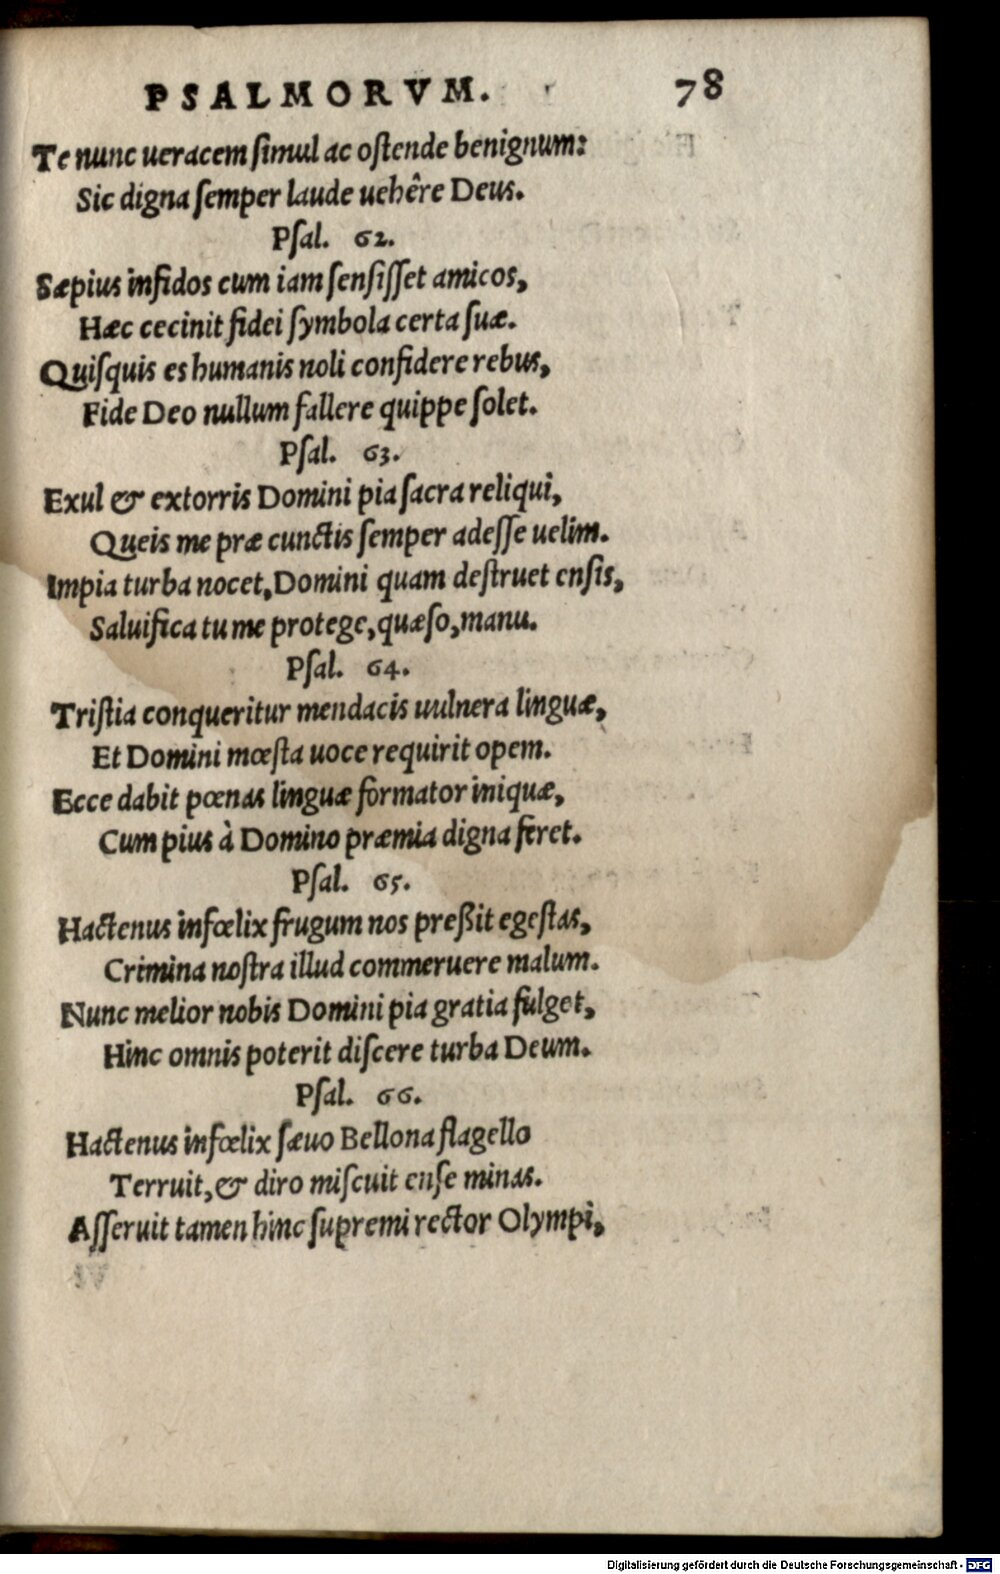 PSALMORVM. 78
Te nunc ueracem ſimul ac oſtende benignum:
Sic digna ſemper laude uehêre Deus.
Pſal. 62.
Sæpius infidos cum iam ſenſiſſet amicos,
Hæc cecinit fidei ſymbola certa ſuæ.
Quiſquis es humanis noli confidere rebus,
Fide Deo nullum fallere quippe ſolet.
Pſal. 63.
Exul & extorris Domini pia ſacra reliqui,
Queis me præ cunctis ſemper adeſſe uelim.
Impia turba nocet, Domini quam deſtruet enſis,
Saluifica tu me protege, quæſo, manu.
Pſal. 64.
Triſtia conqueritur mendacis uulnera linguæ,
Et Domini mœſta uoce requirit opem.
Ecce dabit pœnas linguæ formator iniquæ,
Cum pius à Domino præmia digna feret.
Pſal. 65.
Hactenus infœlix frugum nos preßit egeſtas,
Crimina noſtra illud commeruere malum.
Nunc melior nobis Domini pia gratia fulget,
Hinc omnis poterit diſcere turba Deum.
Pſal. 66.
Hactenus infœlix ſæuo Bellona flagello
Terruit, & diro miſcuit enſe minas.
Aſſeruit tamen hinc ſupremi rector Olympi,
Digitalisierung gefördert durch die Deutsche Forschungsgemeinschaft - DFG